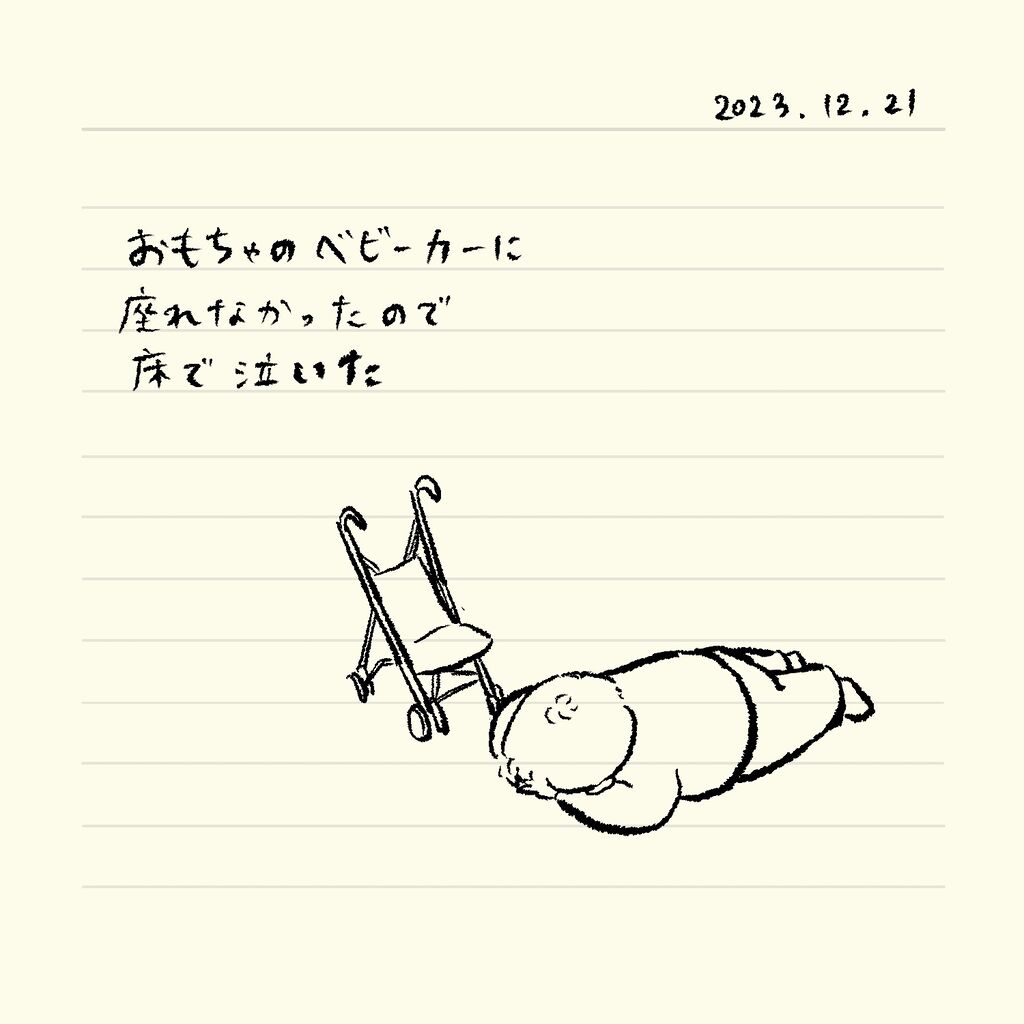 2023.12.21
おもちゃのベビーカーに
座れなかったので
床で泣いた